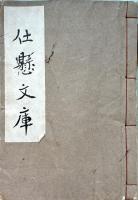 仕懸文庫